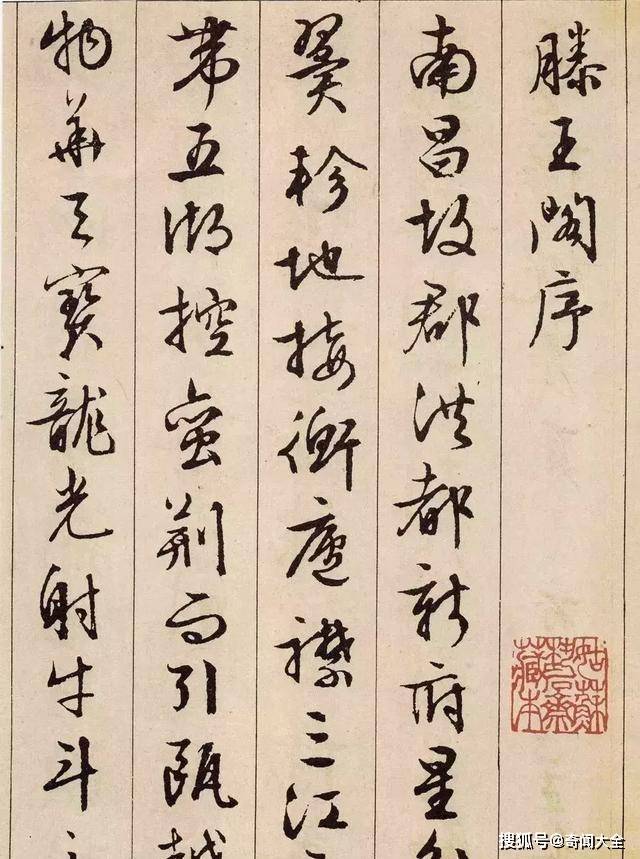 滕王閣序
南昌故郡洪都新府星分
翼軫地接衡廬襟三江而
帶五湖控蠻荊而引甌越
物華天寶龍光射牛斗之
姑蘇
藏本
搜狐号@奇闻大全